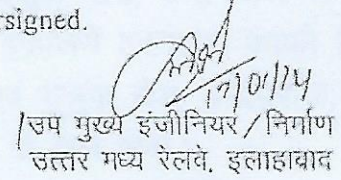 rsigned.
17/01/14
उप मुख्य इंजीनियर/निर्माण
उत्तर मध्य रेलवे, इलाहाबाद